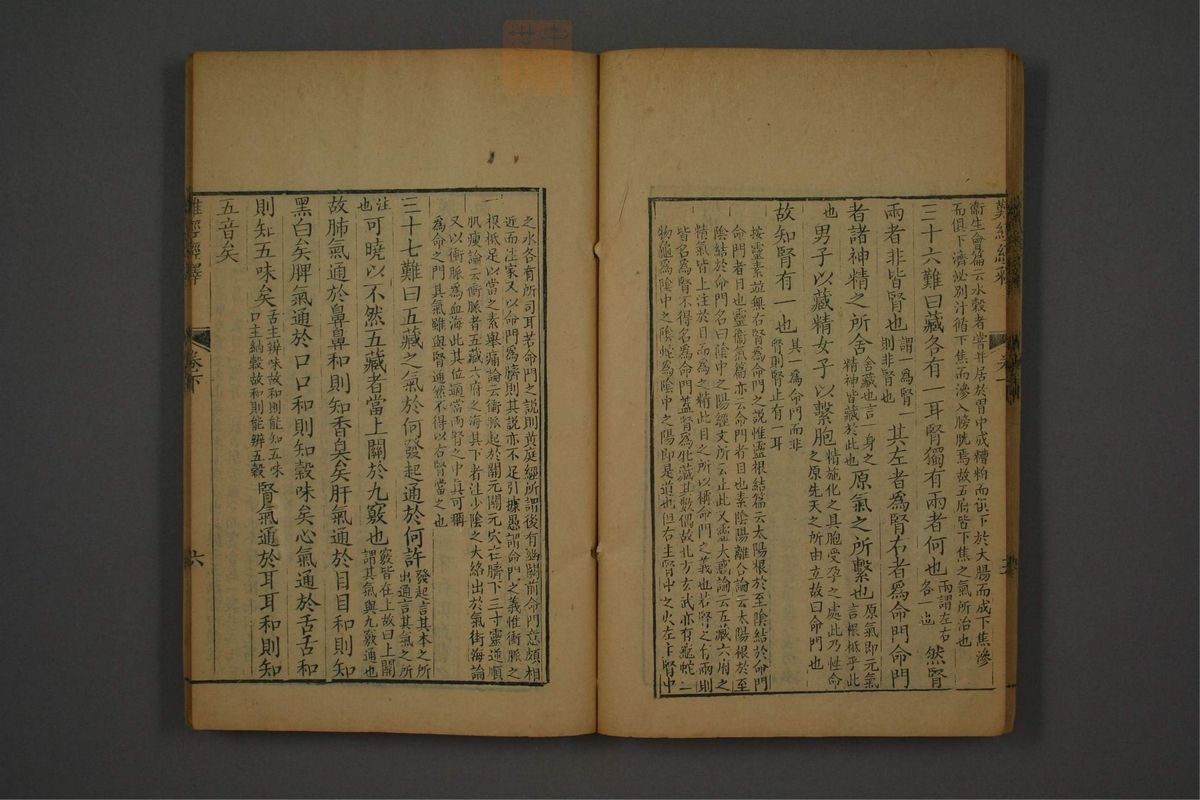 難經經釋
衞生會篇云水穀者常并居於胃中成糟粕而俱下於大腸而成下焦滲
而俱下濟泌別汁循下焦而滲入膀胱焉故五府皆下焦之氣所治也
三十六難曰藏各有一耳腎獨有兩者何也兩謂左右各一也然腎
兩者非皆腎也謂一爲腎一則非腎也其左者爲腎右者爲命門命門
者諸神精之所舍舍藏也言一身之精神皆藏於此也原氣之所繫也原氣即元氣也言根柢乎此
也男子以藏精女子以繫胞精施化之具胞受孕之處此乃性命之原先天之所由立故曰命門也
故知腎有一也其一爲命門而非腎則腎止有一耳
按靈素並無右腎爲命門之說惟靈根結篇云太陽根於至陰結於命門
命門者目也靈衞氣篇亦云命門者目也素陰陽離合論云太陽根於至
陰結於命門名曰陰中之陽經文所云止此又靈大惑論云五藏六府之
精氣皆上注於目而爲之精此目之所以稱命門之義也若腎之有兩則
皆名爲腎不得名爲命門蓋腎爲牝藏其數偶故北方玄武亦有龜蛇二
物龜爲陰中之陰蛇爲陰中之陽即是道也但右主腎中之火左主腎中
之水各有所司耳若命門之說則黄庭經所謂後有幽關前命門意頗相
近而注家又以命門爲臍則其說亦不足引據愚謂命門之義惟衝脈之
根柢足以當之素舉痛論云衝脈起於關元關元穴在臍下三寸靈逆順
肌瘦論云衝脈者五藏六府之海其下者注少陰之大絡出於氣街海論
又以衝脈爲血海此其位適當兩腎之中真可稱
爲命之門其氣雖與腎通然不得以右腎當之也
三十七難曰五藏之氣於何發起通於何許發起言其本之所出通言其氣之所
注也可曉以不然五藏者當上關於九竅也竅皆在上故曰上關謂其氣與九竅通也
故肺氣通於鼻鼻和則知香臭矣肝氣通於目目和則知
黑白矣脾氣通於口口和則知穀味矣心氣通於舌舌和
則知五味矣舌主辨味故和則能知五味口主納穀故和則能辨五穀腎氣通於耳耳和則知
五音矣
難經經釋
卷下
六